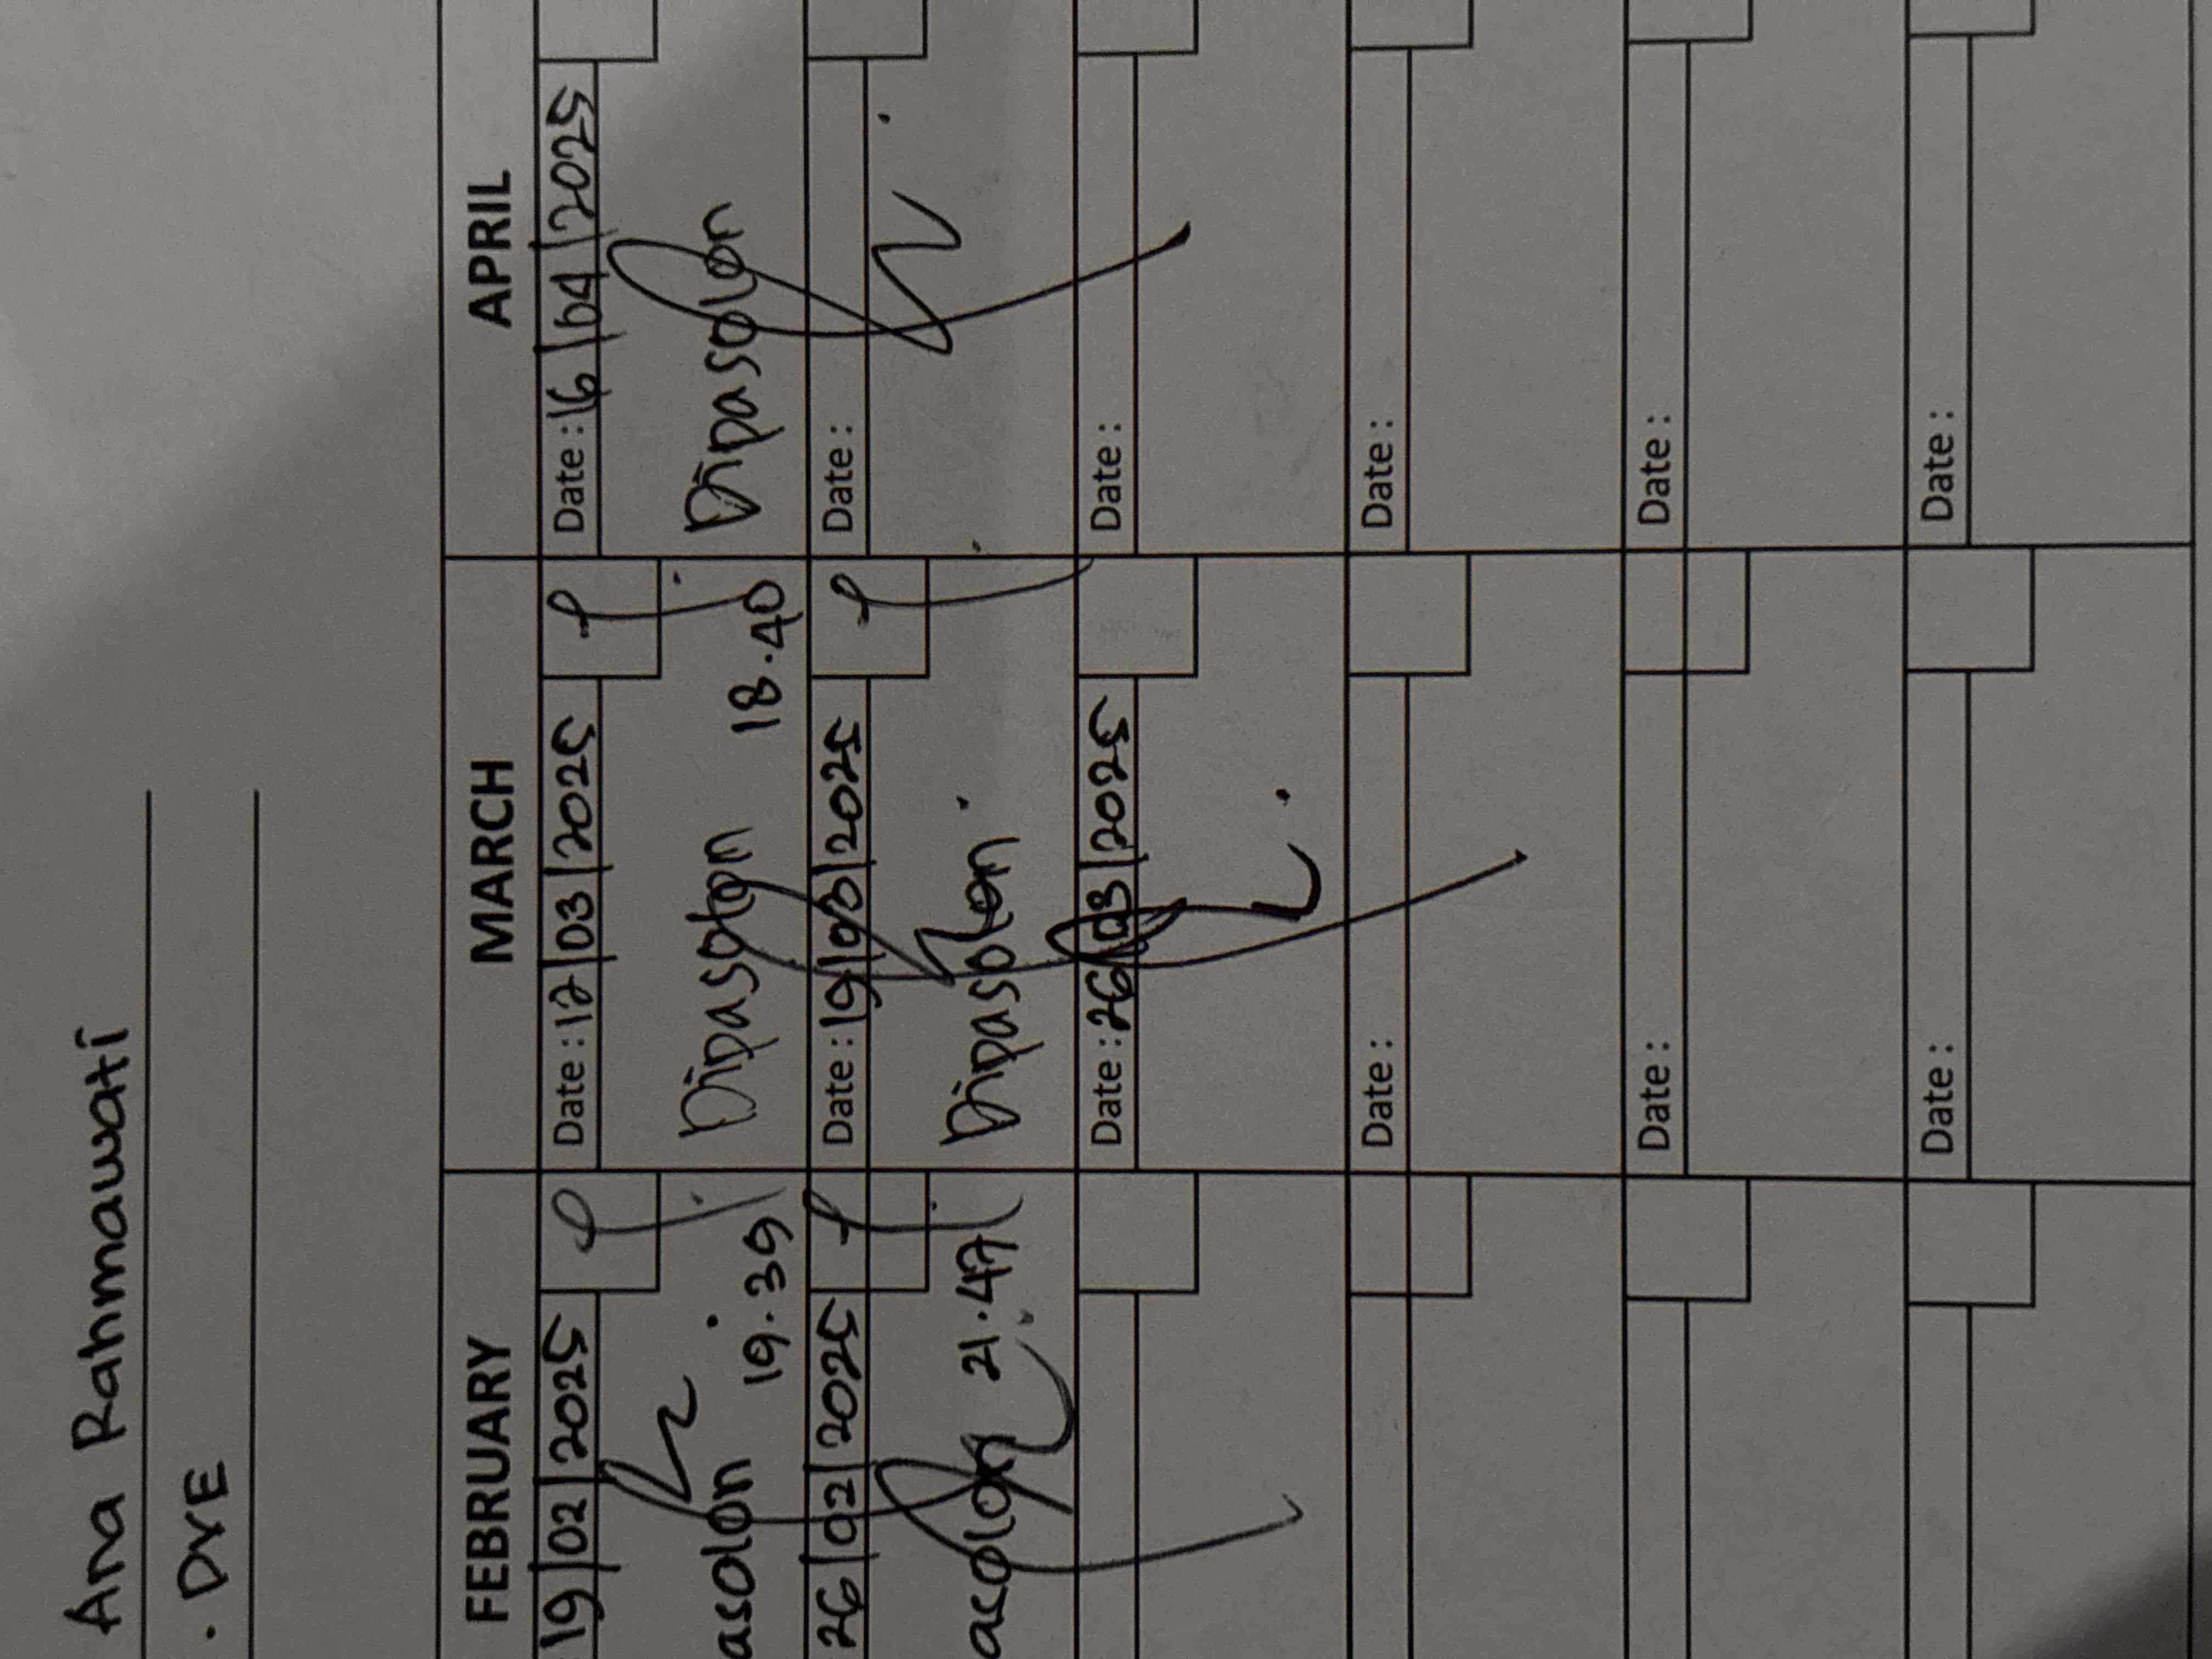 Ana Rahmawati
. DVE
FEBRUARY
MARCH
APRIL
19/02/2025
Date : 12/03/2025
Date : 16/04/2025
asolon 19.39
Dipasolon 18.40
Dipasolon
26/02/2025
Date : 19/03/2025
Date :
asolon 21.47
Dipasolon
Date : 26/03/2025
Date :
Date :
Date :
Date :
Date :
Date :
Date :